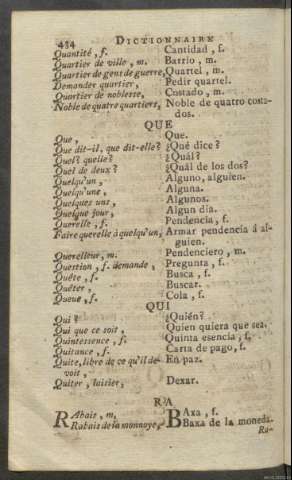 434 DICTIONNAIRE
Quantité, f. Cantidad, f.
Quartier de ville, m. Barrio, m.
Quartier de gent de guerre, Quartel, m.
Demander quartier, Pedir quartel.
Quartier de noblesse, Costado, m.
Noble de quatre quartiers, Noble de quatro costa-
dos.
QUE
Que, Que.
Que dit-il, que dit-elle? ¿Qué dice?
Quel? quelle? ¿Quál?
Quel de deux? ¿Quál de los dos?
Quelqu'un, Alguno, alguien.
Quelqu'une, Alguna.
Quelques uns, Algunos.
Quelque jour, Algun dia.
Querelle, f. Pendencia, f.
Faire querelle à quelqu'un, Armar pendencia á al-
guien.
Querelleur, m. Pendenciero, m.
Question, f. demande, Pregunta, f.
Quête, f. Busca, f.
Quêter, Buscar.
Queue, f. Cola, f.
QUI
Qui? ¿Quién?
Qui que ce soit, Quien quiera que sea.
Quintessence, f. Quinta esencia, f.
Quitance, f. Carta de pago, f.
Quite, libre de ce qu'il de- En paz.
voit,
Quiter, laisser, Dexar.
RA
RAbais, m, BAxa, f.
Rabais de la monnoye, Baxa de la moneda.
Ra-